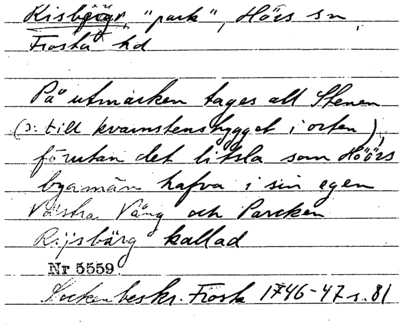 "park", Höörs sn,
Frosta hd
På utmarken tages all Stenen
(ɔ: till kvarnstenshygget i orten),
förutan det litsla som Höörs
byamän hafva i sin egen
Västra Vång och Parcken
Rijsbärg kallad
Nr 5559
Sockenbeskr. Frosta 1746-47 s. 81